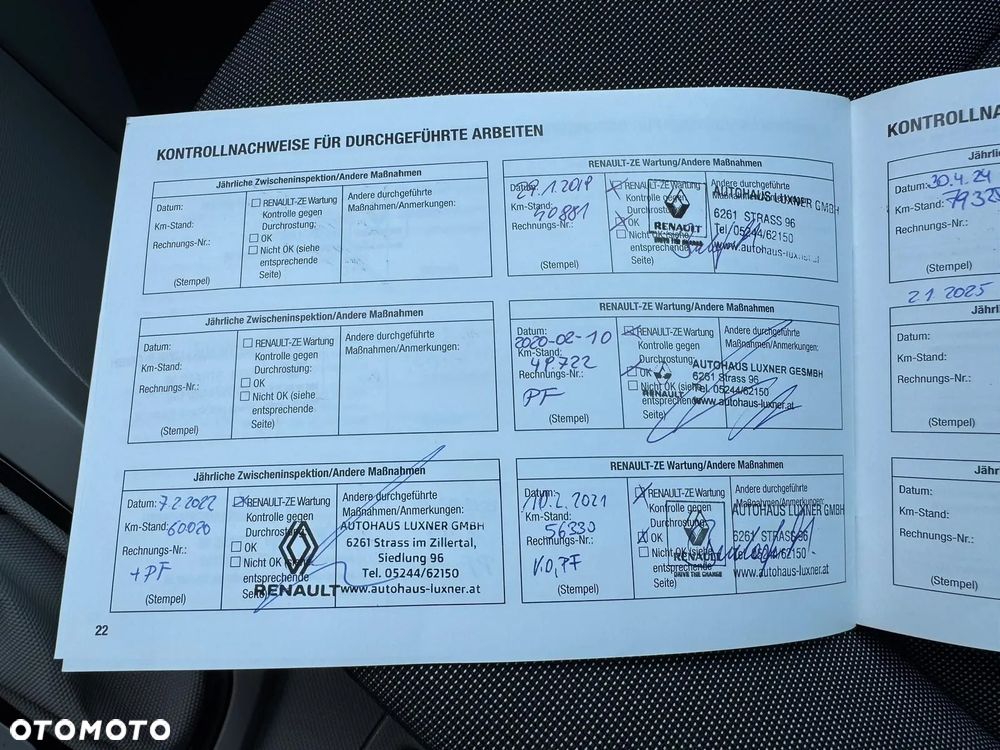 KONTROLLNACHWEISE FÜR DURCHGEFÜHRTE ARBEITEN
Jährliche Zwischeninspektion/Andere Maßnahmen
Datum:
Km-Stand:
Rechnungs-Nr.:
(Stempel)
RENAULT-ZE Wartung
Kontrolle gegen
Durchrostung:
OK
Nicht OK (siehe
entsprechende
Seite)
Andere durchgeführte
Maßnahmen/Anmerkungen:
Jährliche Zwischeninspektion/Andere Maßnahmen
Datum:
Km-Stand:
Rechnungs-Nr.:
(Stempel)
RENAULT-ZE Wartung
Kontrolle gegen
Durchrostung:
OK
Nicht OK (siehe
entsprechende
Seite)
Andere durchgeführte
Maßnahmen/Anmerkungen:
Jährliche Zwischeninspektion/Andere Maßnahmen
Datum: 7.2.2022
Km-Stand: 60020
Rechnungs-Nr.:
+PF
(Stempel)
RENAULT-ZE Wartung
Kontrolle gegen
Durchrostung:
OK
Nicht OK (siehe
entsprechende
Seite)
RENAULT
Andere durchgeführte
Maßnahmen/Anmerkungen:
AUTOHAUS LUXNER GMBH
6261 Strass im Zillertal,
Siedlung 96
Tel. 05244/62150
www.autohaus-luxner.at
22
RENAULT-ZE Wartung/Andere Maßnahmen
Datum:
Km-Stand:
40881
Rechnungs-Nr.:
(Stempel)
RENAULT-ZE Wartung
Kontrolle gegen
Durchrostung:
OK
Nicht OK (siehe
entsprechende
Seite)
RENAULT
DRIVE THE CHANGE
Andere durchgeführte
AUTOHAUS LUXNER GMBH
6261 STRASS 96
Tel./05244/62150
www.autohaus-luxner.at
RENAULT-ZE Wartung/Andere Maßnahmen
Datum:
2020-02-10
Km-Stand:
49.722
Rechnungs-Nr.:
PF
(Stempel)
RENAULT-ZE Wartung
Kontrolle gegen
Durchrostung:
OK
Nicht OK (siehe
entsprechende
Seite)
RENAULT
Andere durchgeführte
Maßnahmen/Anmerkungen:
AUTOHAUS LUXNER GESMBH
6261 Strass 96
Tel. 05244/62150
www.autohaus-luxner.at
RENAULT-ZE Wartung/Andere Maßnahmen
Datum:
10.2.2021
Km-Stand:
56330
Rechnungs-Nr.:
V.O, PF
(Stempel)
RENAULT-ZE Wartung
Kontrolle gegen
Durchrostung:
OK
Nicht OK (siehe
entsprechende
Seite)
RENAULT
DRIVE THE CHANGE
Andere durchgeführte
Maßnahmen/Anmerkungen:
AUTOHAUS LUXNER GMBH
6261 STRASS 96
Tel./05244/62150
www.autohaus-luxner.at
KONTROLLNA
Jährli
Datum: 30.4.24
Km-Stand:
Rechnungs-Nr.:
(Stempel)
2.1.2025
Jährl
Datum:
Km-Stand:
Rechnungs-Nr.:
(Stempel)
Jähr
Datum:
Km-Stand:
Rechnungs-Nr.:
(Stempel)
OTOMOTO